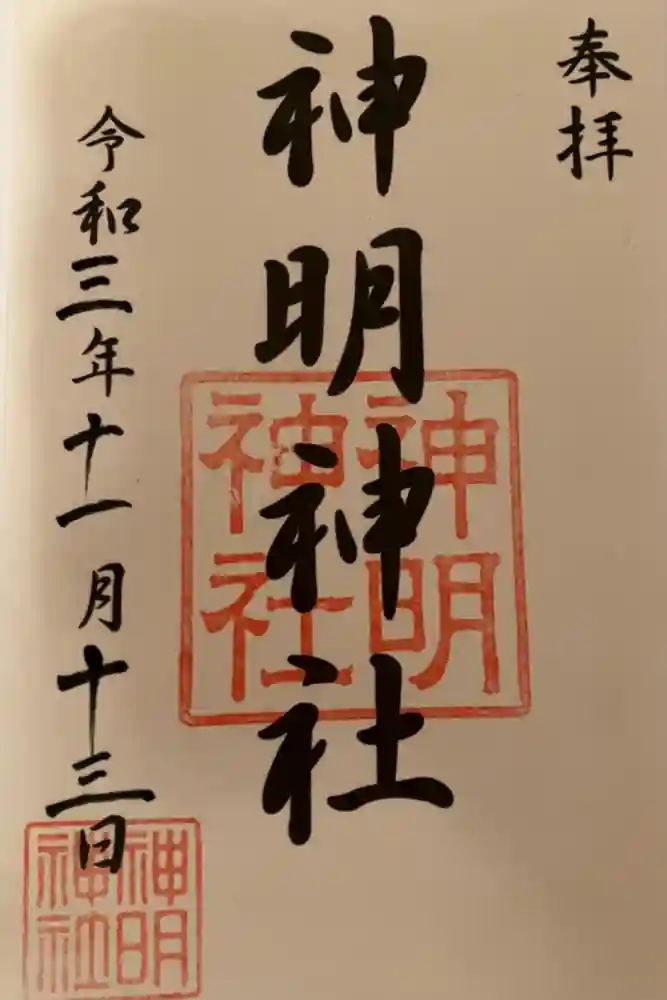 奉拝
神明神社
令和三年十一月十三日
神明
神社
神明
神社